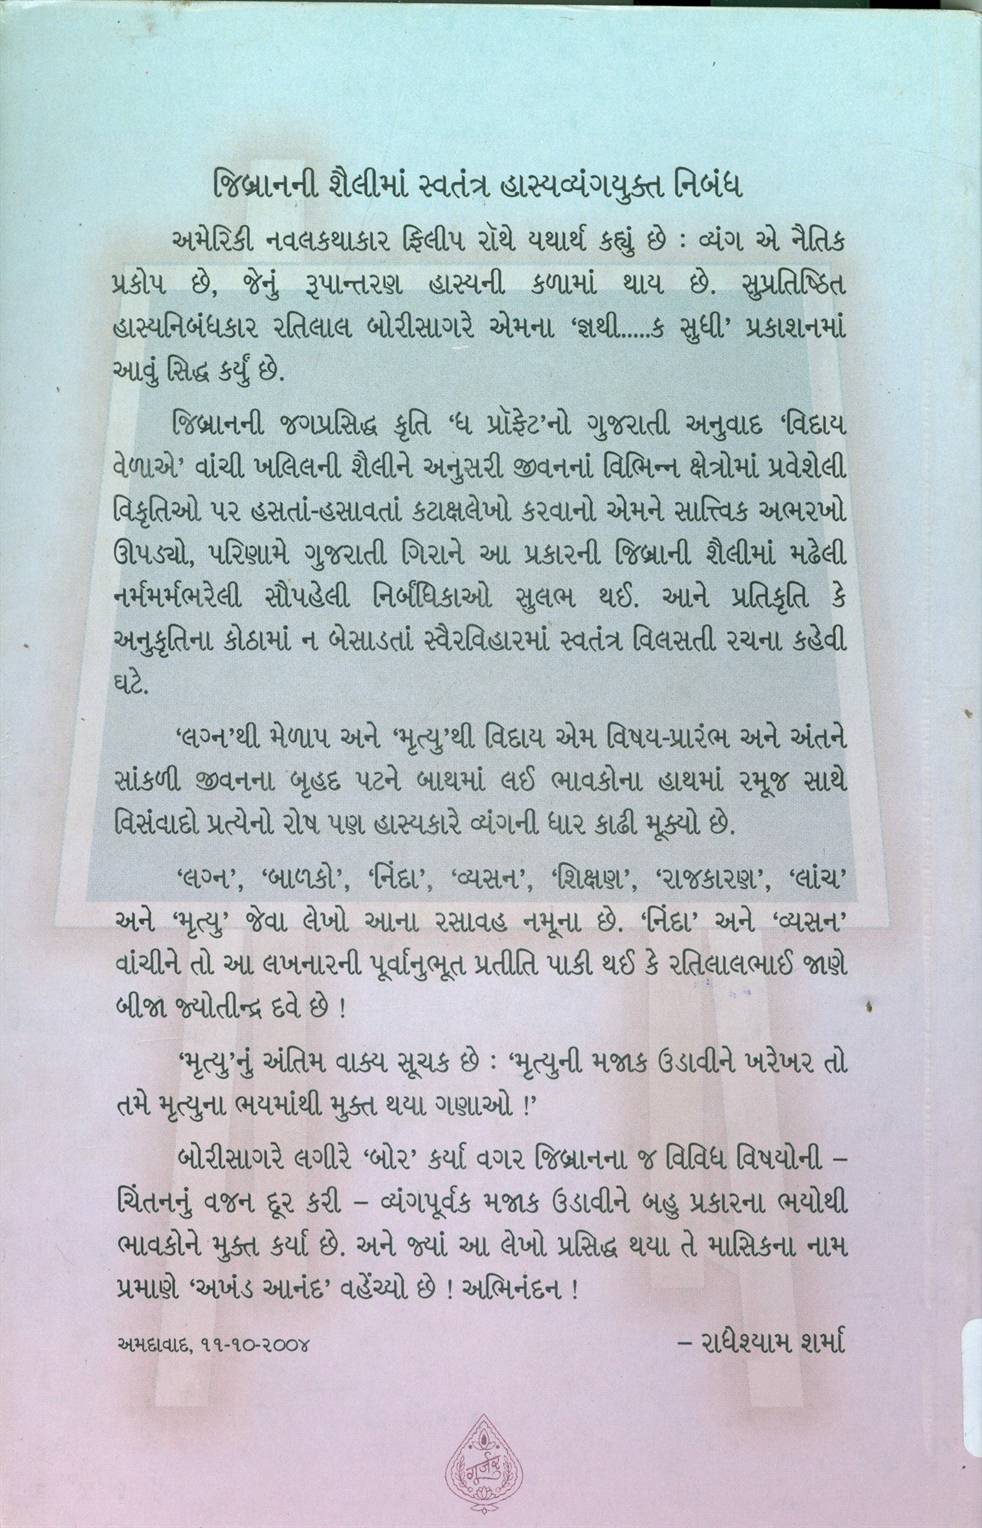 જિબ્રાનની શૈલીમાં સ્વતંત્ર હાસ્યવ્યંગયુક્ત નિબંધ
અમેરિકી નવલકથાકાર ફિલીપ રૉથે યથાર્થ કહ્યું છે : વ્યંગ એ નૈતિક
પ્રકોપ છે, જેનું રૂપાન્તરણ હાસ્યની કળામાં થાય છે. સુપ્રતિષ્ઠિત
હાસ્યનિબંધકાર રતિલાલ બોરીસાગરે એમના ‘જ્ઞથી.....ક સુધી’ પ્રકાશનમાં
આવું સિદ્ધ કર્યું છે.
જિબ્રાનની જગપ્રસિદ્ધ કૃતિ ‘ધ પ્રૉફેટ’નો ગુજરાતી અનુવાદ ‘વિદાય
વેળાએ’ વાંચી ખલિલની શૈલીને અનુસરી જીવનનાં વિભિન્ન ક્ષેત્રોમાં પ્રવેશેલી
વિકૃતિઓ પર હસતાં-હસાવતાં કટાક્ષલેખો કરવાનો એમને સાત્ત્વિક અભરખો
ઊપડ્યો, પરિણામે ગુજરાતી ગિરાને આ પ્રકારની જિબ્રાની શૈલીમાં મઢેલી
નર્મમર્મભરેલી સૌપહેલી નિર્બંધિકાઓ સુલભ થઈ. આને પ્રતિકૃતિ કે
અનુકૃતિના કોઠામાં ન બેસાડતાં સ્વૈરવિહારમાં સ્વતંત્ર વિલસતી રચના કહેવી
ઘટે.
‘લગ્ન’થી મેળાપ અને ‘મૃત્યુ’થી વિદાય એમ વિષય-પ્રારંભ અને અંતને
સાંકળી જીવનના બૃહદ પટને બાથમાં લઈ ભાવકોના હાથમાં રમૂજ સાથે
વિસંવાદો પ્રત્યેનો રોષ પણ હાસ્યકારે વ્યંગની ધાર કાઢી મૂક્યો છે.
‘લગ્ન’, ‘બાળકો’, ‘નિંદા’, ‘વ્યસન’, ‘શિક્ષણ’, ‘રાજકારણ’, ‘લાંચ’
અને ‘મૃત્યુ’ જેવા લેખો આના રસાવહ નમૂના છે. ‘નિંદા’ અને ‘વ્યસન’
વાંચીને તો આ લખનારની પૂર્વાનુભૂત પ્રતીતિ પાકી થઈ કે રતિલાલભાઈ જાણે
બીજા જ્યોતીન્દ્ર દવે છે !
‘મૃત્યુ’નું અંતિમ વાક્ય સૂચક છે : ‘મૃત્યુની મજાક ઉડાવીને ખરેખર તો
તમે મૃત્યુના ભયમાંથી મુક્ત થયા ગણાઓ !’
બોરીસાગરે લગીરે ‘બોર’ કર્યા વગર જિબ્રાનના જ વિવિધ વિષયોની –
ચિંતનનું વજન દૂર કરી – વ્યંગપૂર્વક મજાક ઉડાવીને બહુ પ્રકારના ભયોથી
ભાવકોને મુક્ત કર્યા છે. અને જ્યાં આ લેખો પ્રસિદ્ધ થયા તે માસિકના નામ
પ્રમાણે ‘અખંડ આનંદ’ વહેંચ્યો છે ! અભિનંદન !
અમદાવાદ, ૧૧-૧૦-૨૦૦૪ – રાધેશ્યામ શર્મા
ગૂર્જર